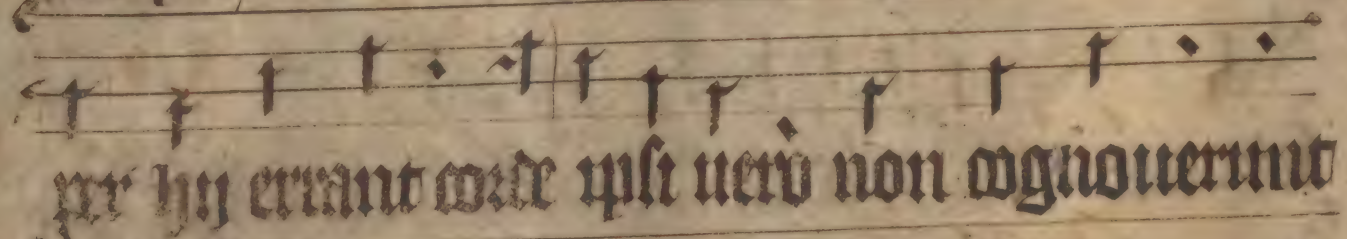 per hii errant corde ipsi uero non cognouerunt